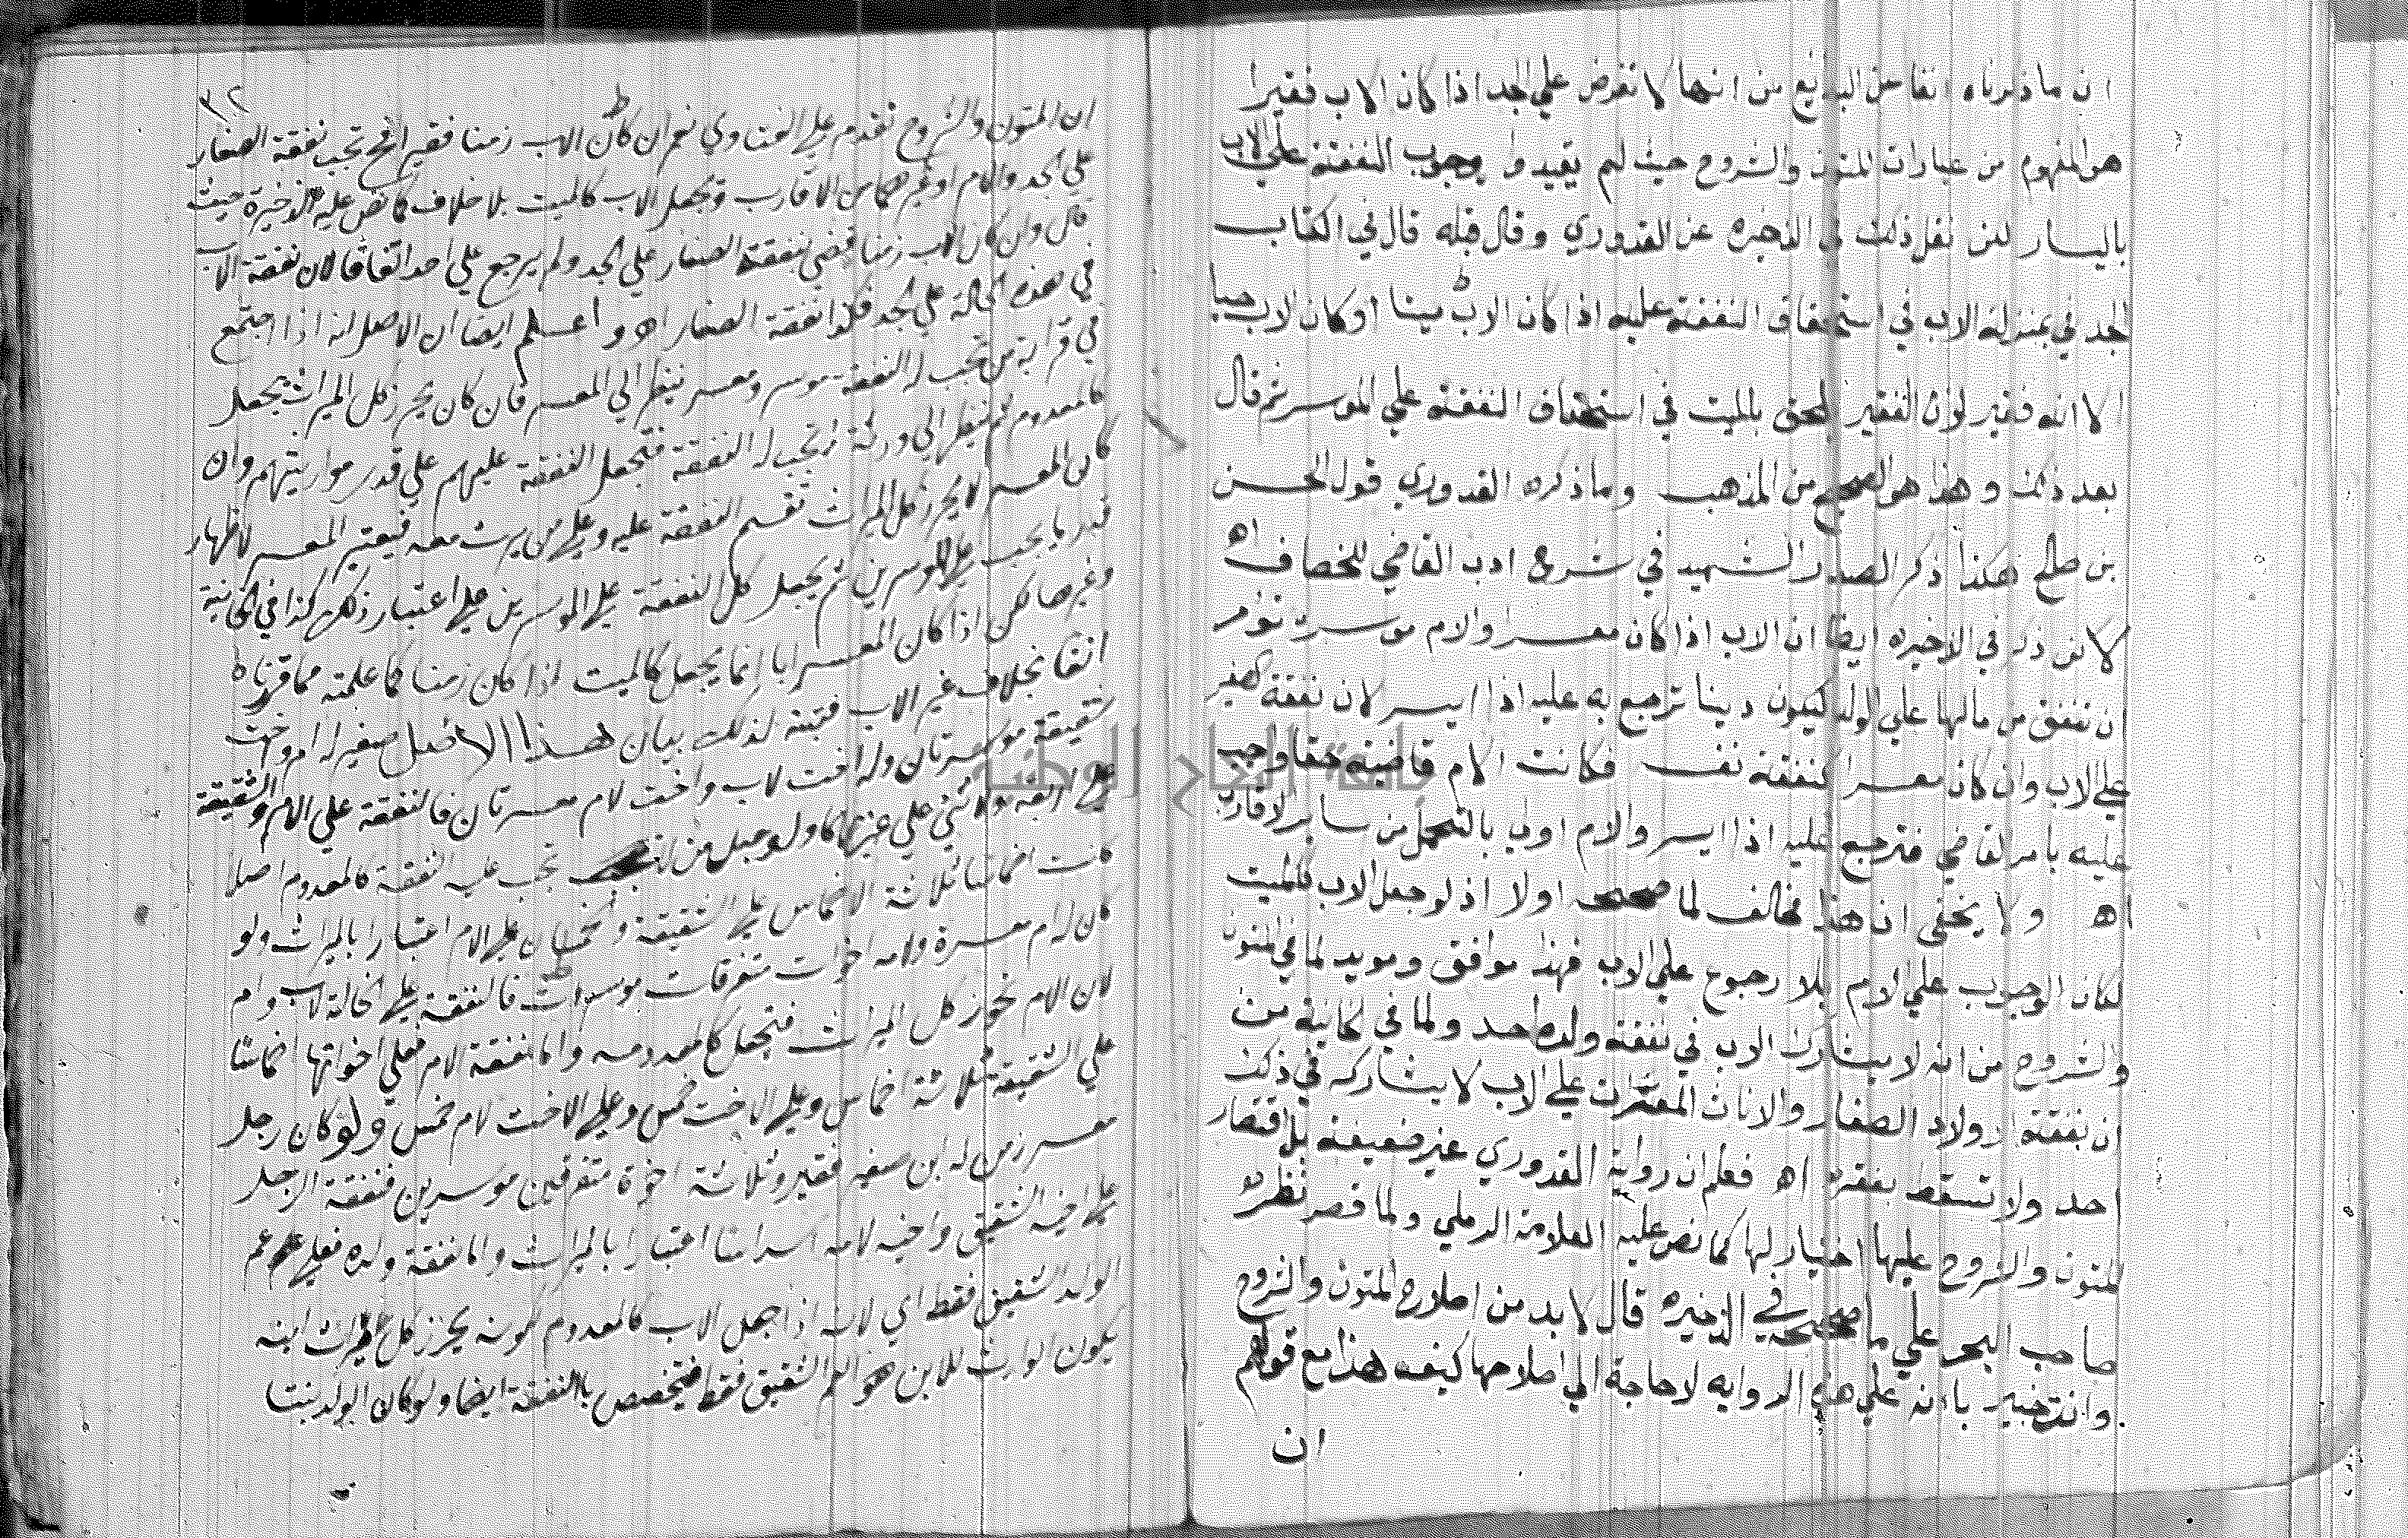 ان ما ذكرناه انفا عن البدايع من انها لا تفرض علي الجد اذا كان الاب فقيرا
هو المفهوم من عبارات المتون والشروح حيث لم يقيدوا وجوب النفقة علي الاب
باليسار لكن نقل ذلك في الذخيره عن القدوري وقال قبله قال في الكتاب
الجد في بمنزلة الاب في استحقاق النفقة عليه اذا كان الاب ميتا او كان الاب حيا
الا انه فقير لان الفقير يلحق بالميت في استحقاق النفقة علي الموسر ثم قال
بعد ذلك وهذا هو الصحيح من المذهب وما ذكره القدوري قول الحسن
بن صالح هكذا ذكر الصدر الشهيد في شرح ادب القاضي للخصاف اه
لكن ذكر في الذخيره ايضا ان الاب اذا كان معسرا والام موسرة تؤمر
ان تنفق من مالها علي الولد فيكون دينا ترجع به عليه اذا ايسر لان نفقة الصغير
علي الاب وان كان معسرا كنفقة نفسه فكانت الام قاضية حقا واجبا
عليه بامر القاضي فترجع عليه اذا ايسر والام اولي بالتحمل من ساير الاقارب
اه ولا يخفي ان هذا مخالف لما صححه اولا اذ لو جعل الاب كالميت
لكان الوجوب علي الام بلا رجوع علي الاب فهذا موافق ومويد لما في المتون
والشروح من انه لا يشارك الاب في نفقة ولده احد ولما في الخانية من
ان نفقة الاولاد الصغار والاناث المعسرات علي الاب لا يشاركه في ذلك
احد ولا تسقط بفقره اه فعلم ان رواية القدوري غير ضعيفة بل اقتصار
المتون والشروح عليها اختيار لها كما نص عليه العلامة الرملي ولما قصر نظره
صاحب البحر علي ما صححه في الذخيره قال لا بد من اصلاح المتون والشروح
وانت خبير بانه علي هذه الروايه لا حاجة الي اصلاحها كيف هذا مع قولهم
ان
٣٢
ان المتون والشروح تقدم علي الفتاوي نعم ان كان الاب زمنا فقيرا فح تجب نفقة الصغار
علي الجد والام او غيرهما من الاقارب ويجعل الاب كالميت بلا خلاف كما نص عليه الذخيرة حيث
قال وان كان الاب زمنا يقضي بنفقة الصغار علي الجد ولم يرجع علي احد اتفاقا لان نفقة الاب
في هذه الحالة علي الجد فكذا نفقة الصغار اه واعلم ايضا ان الاصل انه اذا اجتمع
في قرابة من تجب له النفقة موسر ومعسر ينظر الي المعسر فان كان يحرز كل الميراث يجعل
كالمعدوم ثم ينظر الي ورثة من تجب له النفقة فتجعل النفقة عليهم علي قدر مواريثهم وان
كان المعسر لا يحرز كل الميراث تقسم النفقة عليه وعلي من يرث معه فيعتبر المعسر لاظهار
قدر ما يجب علي الموسرين ثم يجعل كل النفقة علي الموسرين علي اعتبار ذلك كذا في الخانية
وغيرها لكن اذا كان المعسر ابا انما يجعل كالميت اذا كان زمنا كما علمته مما قررناه
انفا بخلاف غير الاب فتنبه لذلك بيان هذا الاصل صغير له ام واخت
شقيقة موسرتان وله اخت لاب واخت لام معسرتان فالنفقة علي الام والشقيقة
علي اربعة ولا شي علي غيرهما ولو جعل من لا تجب عليه النفقة كالمعدوم اصلا
كانت اخماسا ثلاثة الاخماس علي الشقيقة والخمسان علي الام اعتبارا بالميراث ولو
كان له ام معسرة ولامه اخوات متفرقات موسرات فالنفقة علي الخالة لاب وام
لان الام تحوز كل الميراث فتجعل كالمعدومه واما نفقة الام فعلي اخواتها اخماسا
علي الشقيقة ثلاثة اخماس وعلي الاخت خمس وعلي الاخت لام خمس ولو كان رجل
معسر زمن له ابن صغير فقير وثلاثة اخوة متفرقين موسرين فنفقة الرجل
علي اخيه الشقيق واخيه لامه اسداسا اعتبارا بالميراث واما نفقة ولده فعلي عم
الولد الشقيق فقط اي لانه اذا جعل الاب كالمعدوم لكونه يحرز كل الميراث ابنه
يكون الوارث للابن هو العم الشقيق فقط فيتخصص بالنفقة ايضا ولو كان الولد بنتا
جامعة النجاح الوطنية